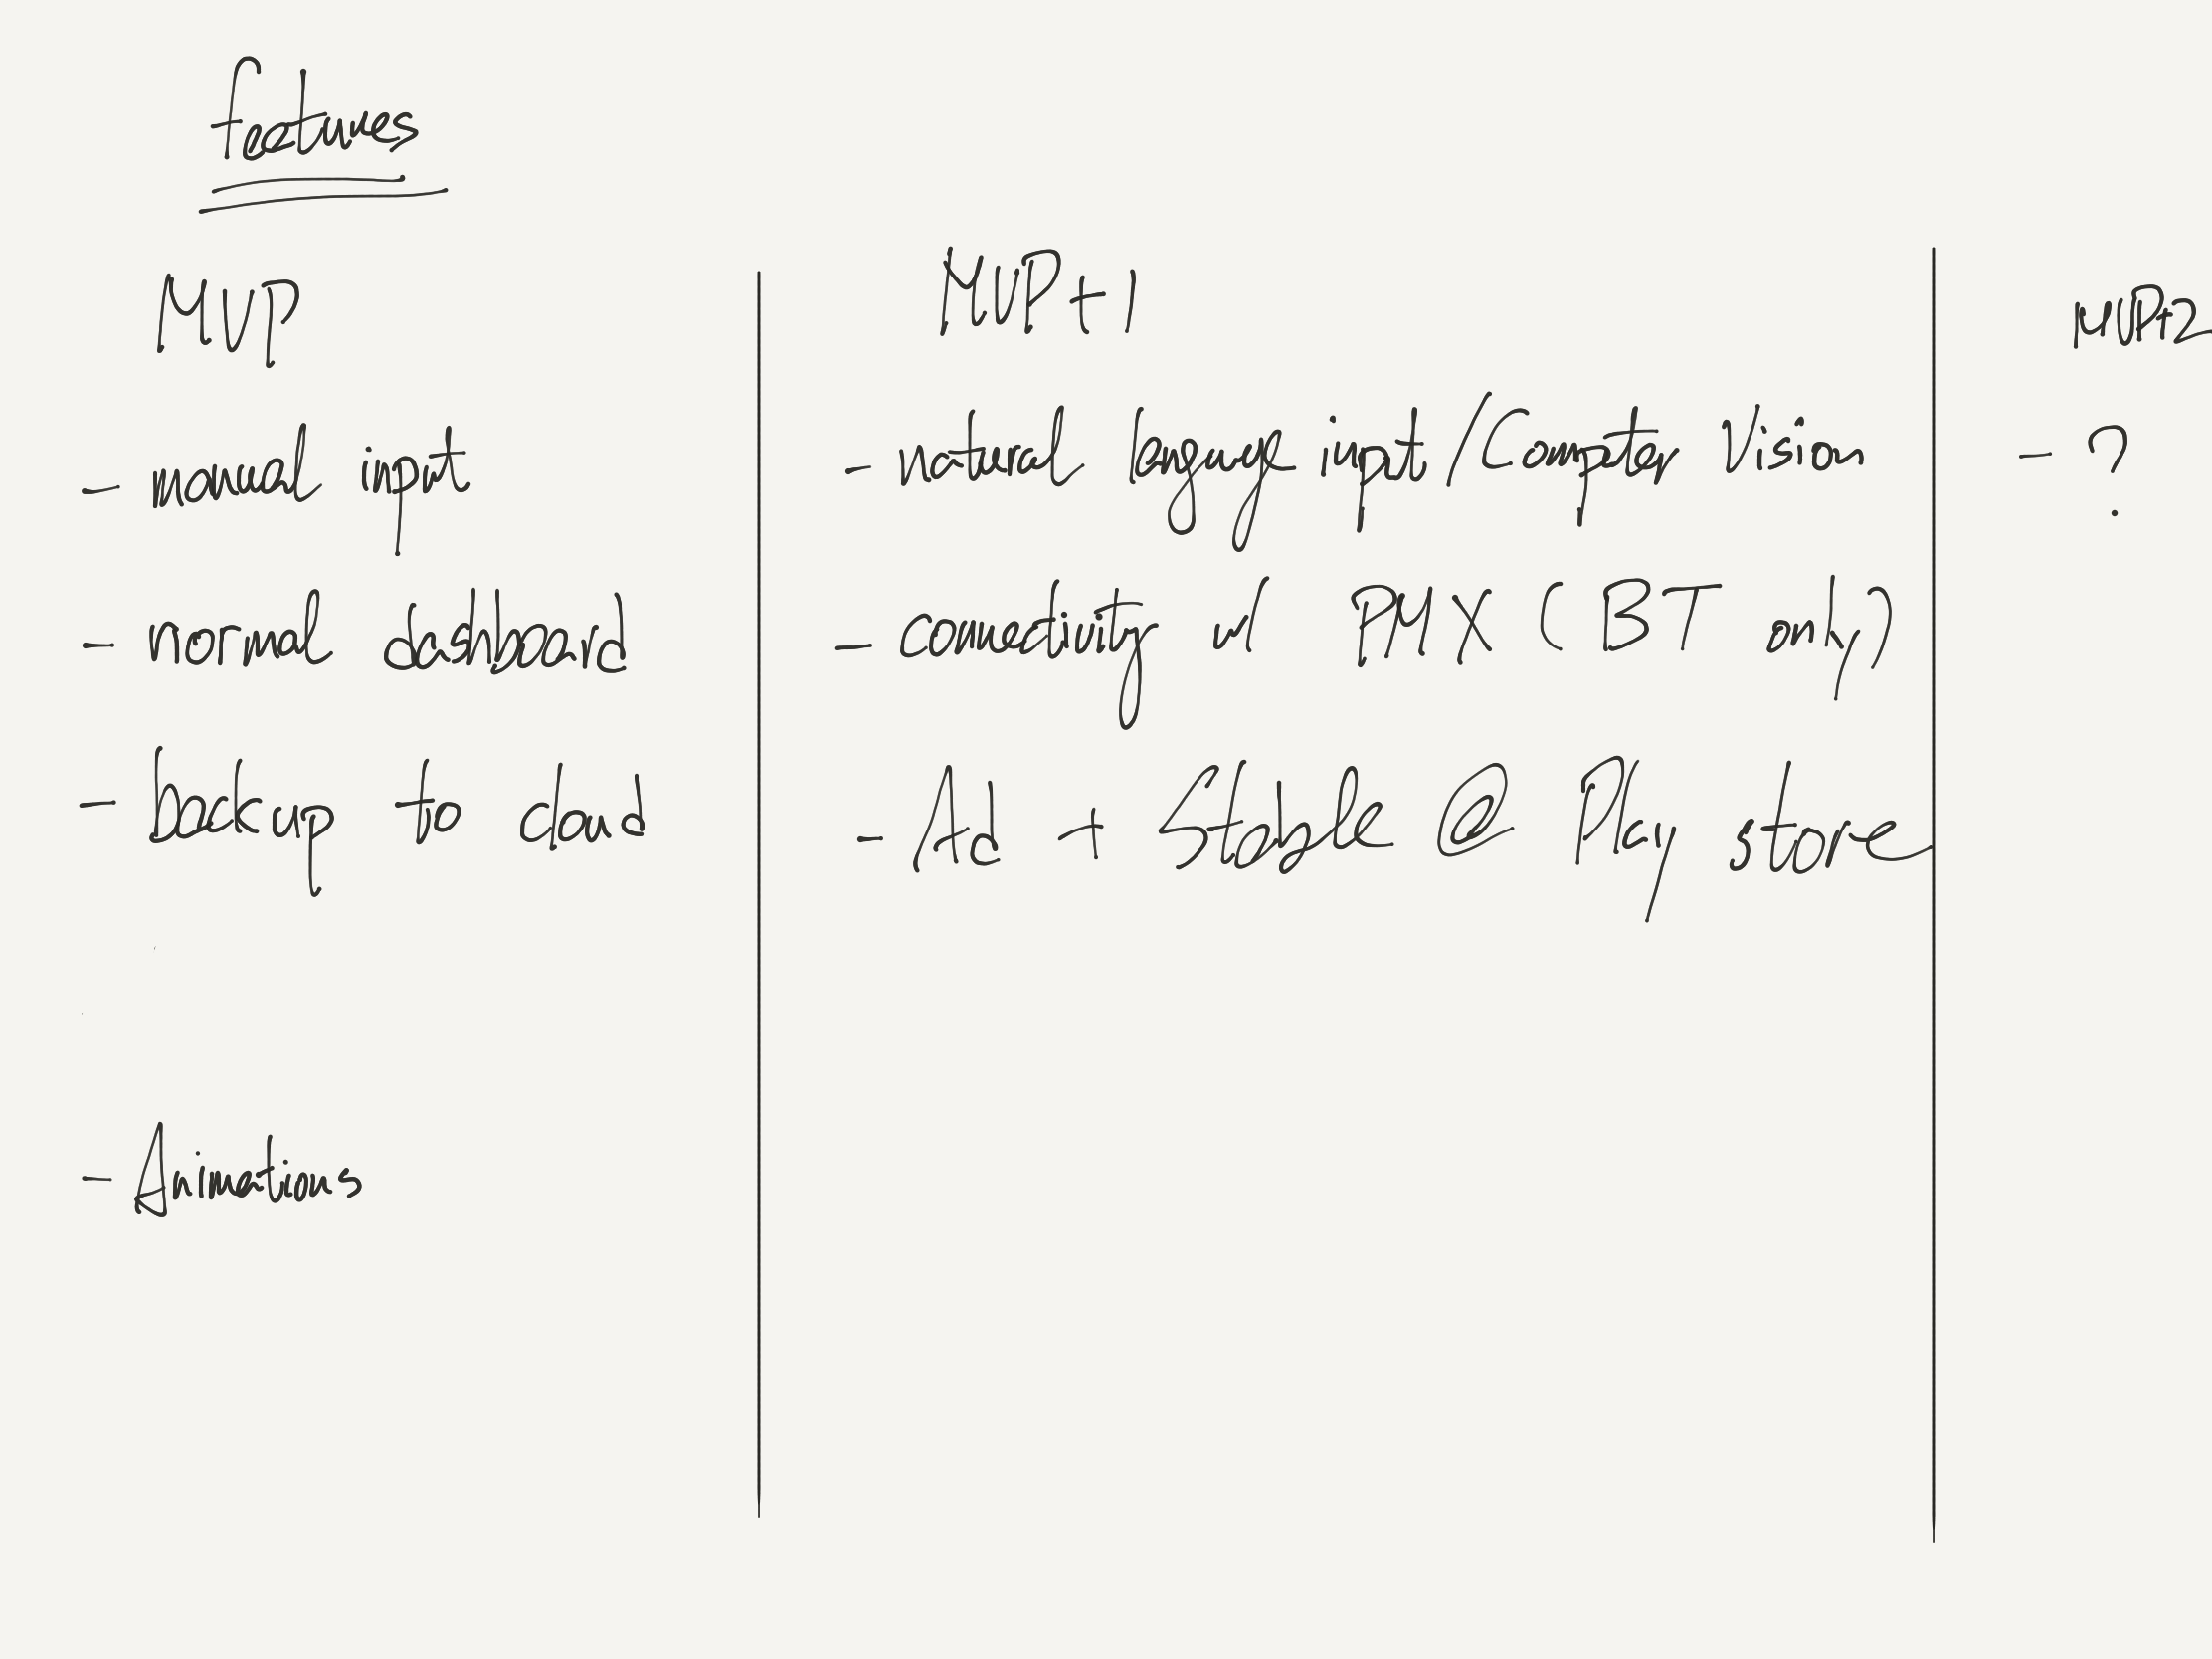 Features
MVP
- manual input
- normal dashboard
- backup to cloud
- Animations
MVP+1
- natural language input / Computer Vision
- connectivity w/ PMX (BT only)
- Ad + Stable @ Play store
MVP+2
- ?